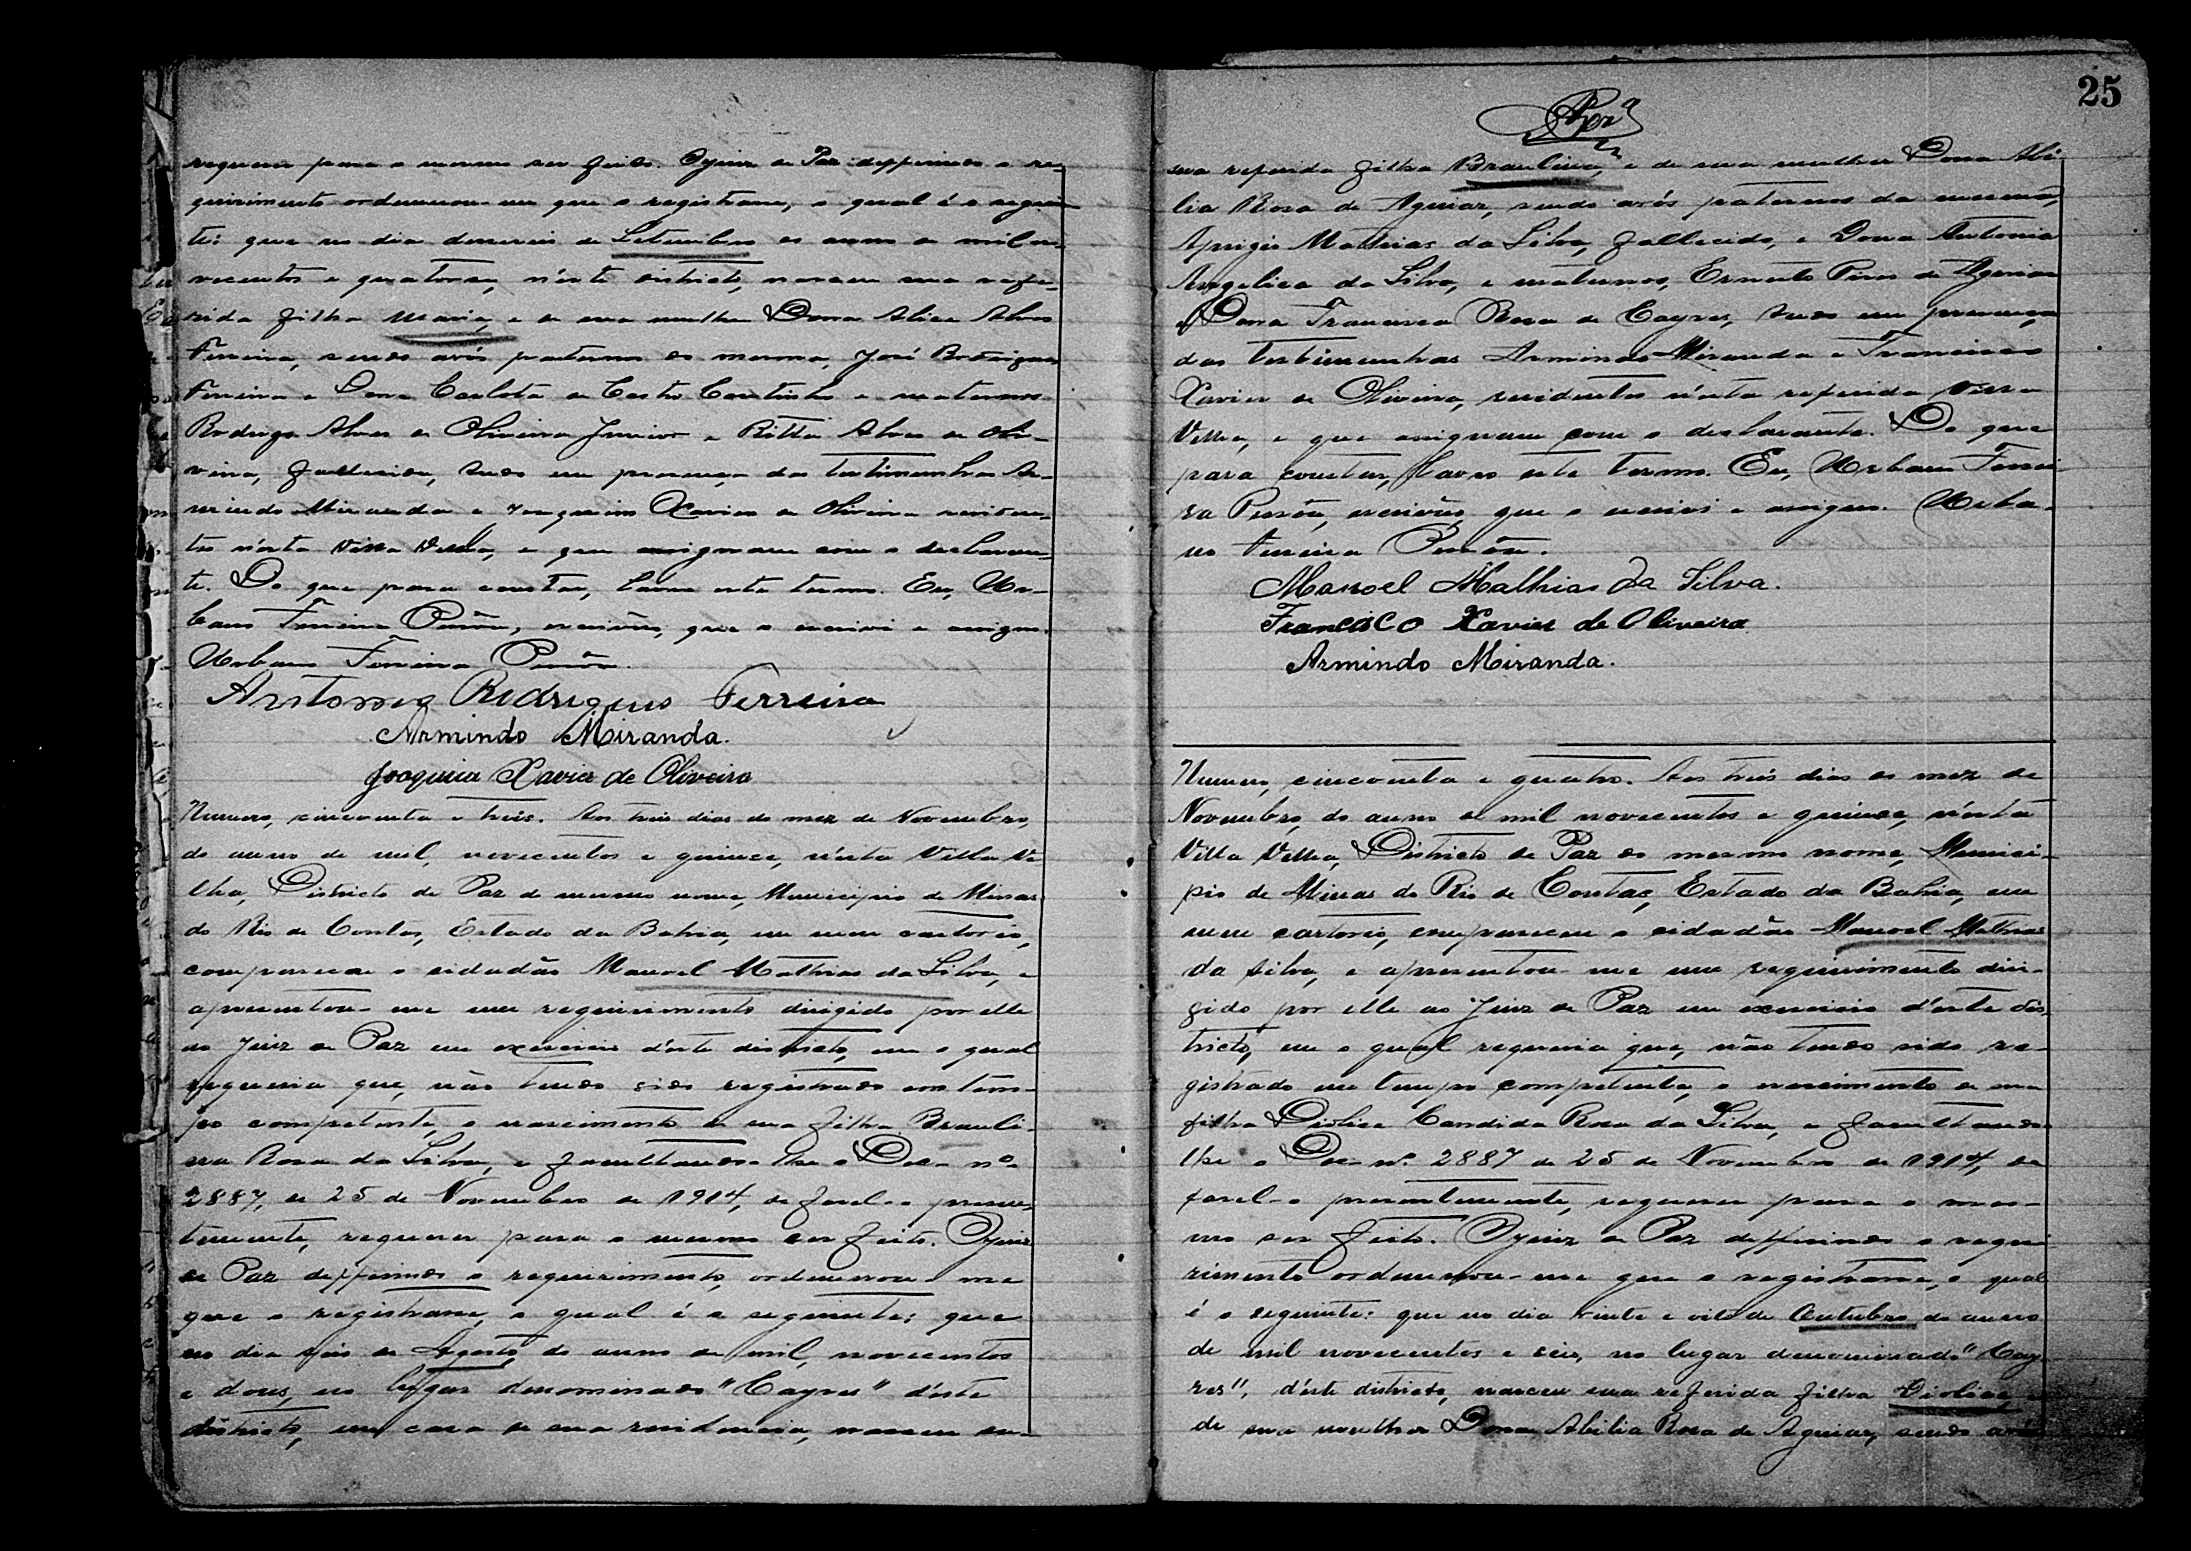 requerer para o mesmo ser feito. O juiz de Paz defferindo o re-
querimento ordennou-me que o registrasse, o qual é o seguin-
te: que no dia dezeseis de Setembro do anno de mil no-
vecentos e quatorse, n'este districto, nasceu sua refe-
rida filha Maria, e de sua mulher Dona Alice Alves
Ferreira, sendo avós paternos da mesma, José Rodrigues
Ferreira e Dona Carlota de Castro Coutinho e maternos
Rodrigo Alves de Oliveira Junior e Ritta Alves de Oli-
veira, fallecida, tudo em presença das testimunhas Ar-
mindo Miranda e Joaquim Xavier de Oliveira residen-
tes n'esta Villa Velha, e que assignaram com o declaran-
te. Do que para constar, lavro este termo. Eu, Ur-
bano Ferreira Pussôa, escrivão, que o escrevi e assigno.
Urbano Ferreira
Antonio Rodrigues Ferreira
Armindo Miranda.
Joaquim Xavier de Oliveira
Numero, cincoenta e treis. Aos treis dias do mez de Novembro,
do anno de mil, novecentos e quince, n'esta Villa Ve
lha, Districto de Paz do mesmo nome, Municipio de Minas
do Rio de Contas, Estado da Bahia, em meu cartorio,
compareceu o cidadão Manoel Mathias da Silva, e
apresentou-me um requirimento dirigido por elle
ao Juiz de Paz em exercicio d'este districto, em o qual
requeria que, não tendo sido registrado em tem-
po competente, o nascimento de sua filha Brauli-
na Rosa da Silva, e facultando-lhe o Dec. nº
2887, de 25 de Novembro de 1914, de fasel-o presen-
temente, requerer para o mesmo ser feito. O juiz
de Paz defferindo o requerimento, ordennou-me
que o registrasse, o qual é o seguinte: que
no dia seis de Agosto do anno de mil, novecentos
e dous, no lugar denominado "Cayres" d'este
districto, em casa de sua residencia, nasceu su-
25
sua referida filha Braulina, e de sua mulher Dona Abi-
lia Rosa de Aguiar, sendo avós paternos da mesma,
Aprigio Mathias da Silva, fallecido, e Dona Antonia
Angelica da Silva, e maternos, Ernesto Pires de Aguiar
e Dona Francisca Rosa de Cayres, tudo em presença
das testimunhas Armindo Miranda e Francisco
Xavier de Oliveira, residentes n'esta referida Villa
Velha, e que assignam com o declarante. Do que
para constar, lavro este termo. Eu, Urbano Ferrei
ra Pussôa, escrivão, que o escrevi e assigno. Urba-
no Ferreira
Manoel Mathias da Silva.
Francisco Xavier de Oliveira
Armindo Miranda.
Numero, cincoenta e quatro. Aos treis dias do mez de
Novembro, do anno de mil novecentos e quinse, n'esta
Villa Velha, Districto de Paz do mesmo nome, Munici-
pio de Minas do Rio de Contas, Estado da Bahia, em
meu cartorio, compareceu o cidadão Manoel Mathias
da Silva, e apresentou-me um requerimento diri-
gido por elle ao Juiz de Paz em exercicio d'este dis-
tricto, em o qual requeria que, não tendo sido re-
gistrado em tempo competente, o nascimento de sua
filha Diolice Candida Rosa da Silva, e facultando-
lhe o Dec. nº 2887 de 25 de Novembro de 1914, de
fasel-o presentemente, requerer para o mes-
mo ser feito. O juiz de Paz defferindo o reque
rimento ordennou-me que o registrasse, o qual
é o seguinte: que no dia vinte e oito de Outubro do anno
de mil novecentos e seis, no lugar denominado "Cay-
res", d'este districto, nasceu sua referida filha Diolice, e
de sua mulher Dona Abilia Rosa de Aguiar, sendo avós